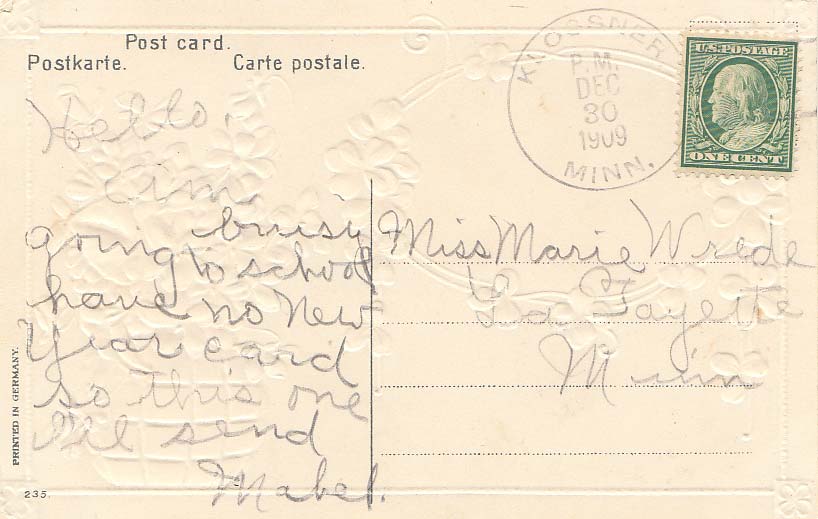 Post card.
Postkarte. Carte postale.
KLOSSNER
P.M.
DEC
30
1909
MINN.
U.S. POSTAGE
ONE CENT
Hello.
Am
buisy
going to school
have no New
Year card
so this one
I'll send
Mabel.
Miss Marie Wrede
La Fayette
Minn
PRINTED IN GERMANY.
235.